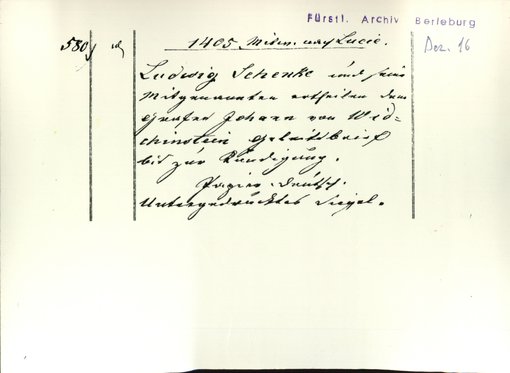 Fürstl. Archiv Berleburg
580
1405 Mittw. nach Lucie.
Dez. 16
Ludwig Schenke und seine
Mitgenannten ertheilen dem
Grafen Johann von Wid=
chinstein Geleitsbrief
bis zur Kündigung.
Papier. Deutsch.
Untergedrucktes Siegel.